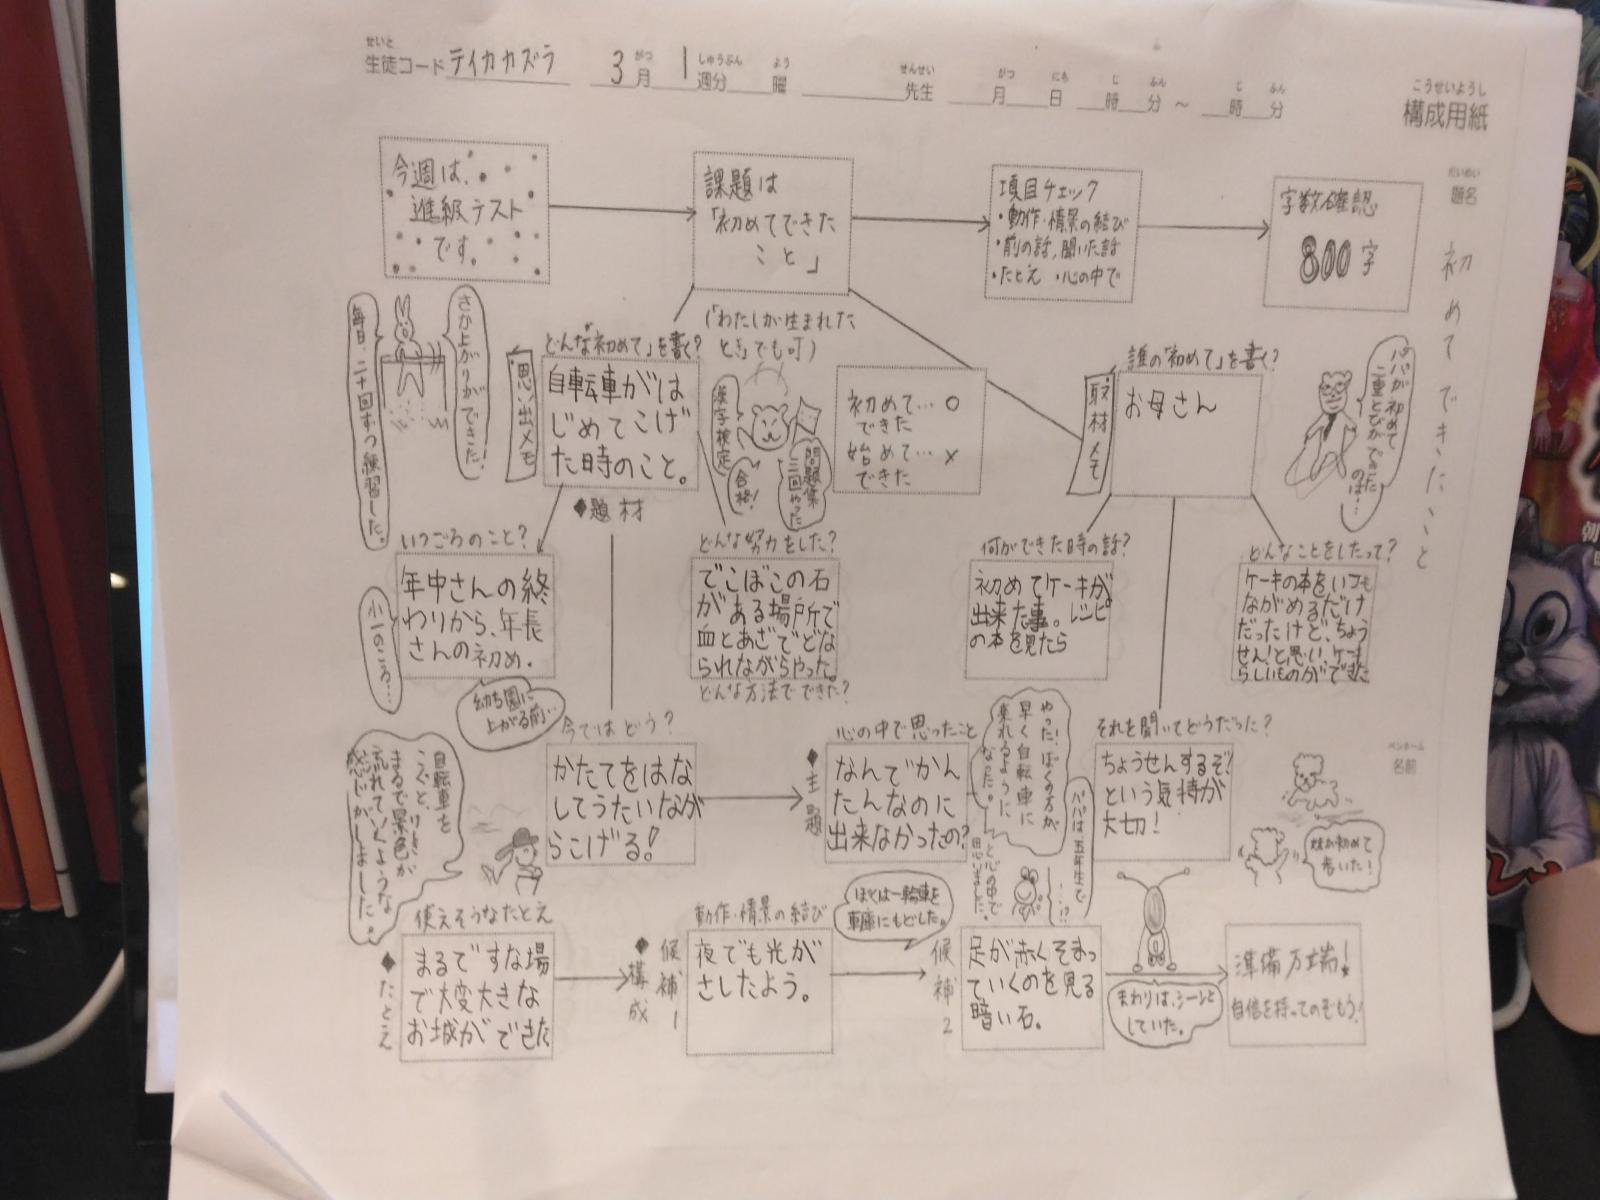 せいと
生徒コード テイカカズラ
3月 1週分 曜
がつ しゅうぶん よう
先生
せんせい
月 日 時 分 ～ 時 分
がつ にち じ ふん じ ふん
こうせいようし
構成用紙
だいめい
題名
初めてできたこと
今週は、
進級テスト
です。
課題は
「初めてできた
こと」
項目チェック
・動作・情景の結び
・前の話、聞いた話
・たとえ ・心の中で
字数確認
800字
さか上がりができた。
毎日、二十回ずつ練習した。
(「わたしが生まれた
とき」でも可)
どんな「初めて」を書く?
思い出メモ
自転車がは
じめてこげ
た時のこと。
◆題材
漢字検定
合格!
問題集
三回やった
初めて…○
できた
始めて…×
できた
誰の「初めて」を書く?
取材メモ
お母さん
パパが初めて
二重とびができた
のは…
いつごろのこと?
年中さんの終
わりから、年長
さんの初め.
小一のころ…
幼ち園に
上がる前…
どんな努力をした?
でこぼこの石
がある場所で
血とあざでどな
られながらやった。
どんな方法でできた?
何ができた時の話?
初めてケーキが
出来た事。レシピ
の本を見たら
どんなことをしたって?
ケーキの本をいつも
ながめるだけ
だったけど、ちょう
せん!と思い、ケーキ
らしいものができた
今ではどう?
かたてをはな
してうたいなが
らこげる!
◆主題
心の中で思ったこと
なんでかん
たんなのに
出来なかったの?
やった!ぼくの方が
早く自転車に
乗れるように
なった。
と心の中で
思いました。
パパは、五年生で
…!?
それを聞いてどうだった?
ちょうせんするぞ!
という気持が
大切!
ペンネーム
名前
妹が初めて
歩いた!
自転車を
こぐと、
まるで景色が
流れていくような
感じがしました。
使えそうなたとえ
◆たとえ
まるですな場
で大変大きな
お城ができた
◆構成
動作・情景の結び
候補1
夜でも光が
さしたよう。
ぼくは一輪車を
車庫にもどした。
候補2
足が赤くそまっ
ていくのを見る
暗い石。
まわりは、シーンと
していた。
準備万端!
自信を持ってのぞもう!